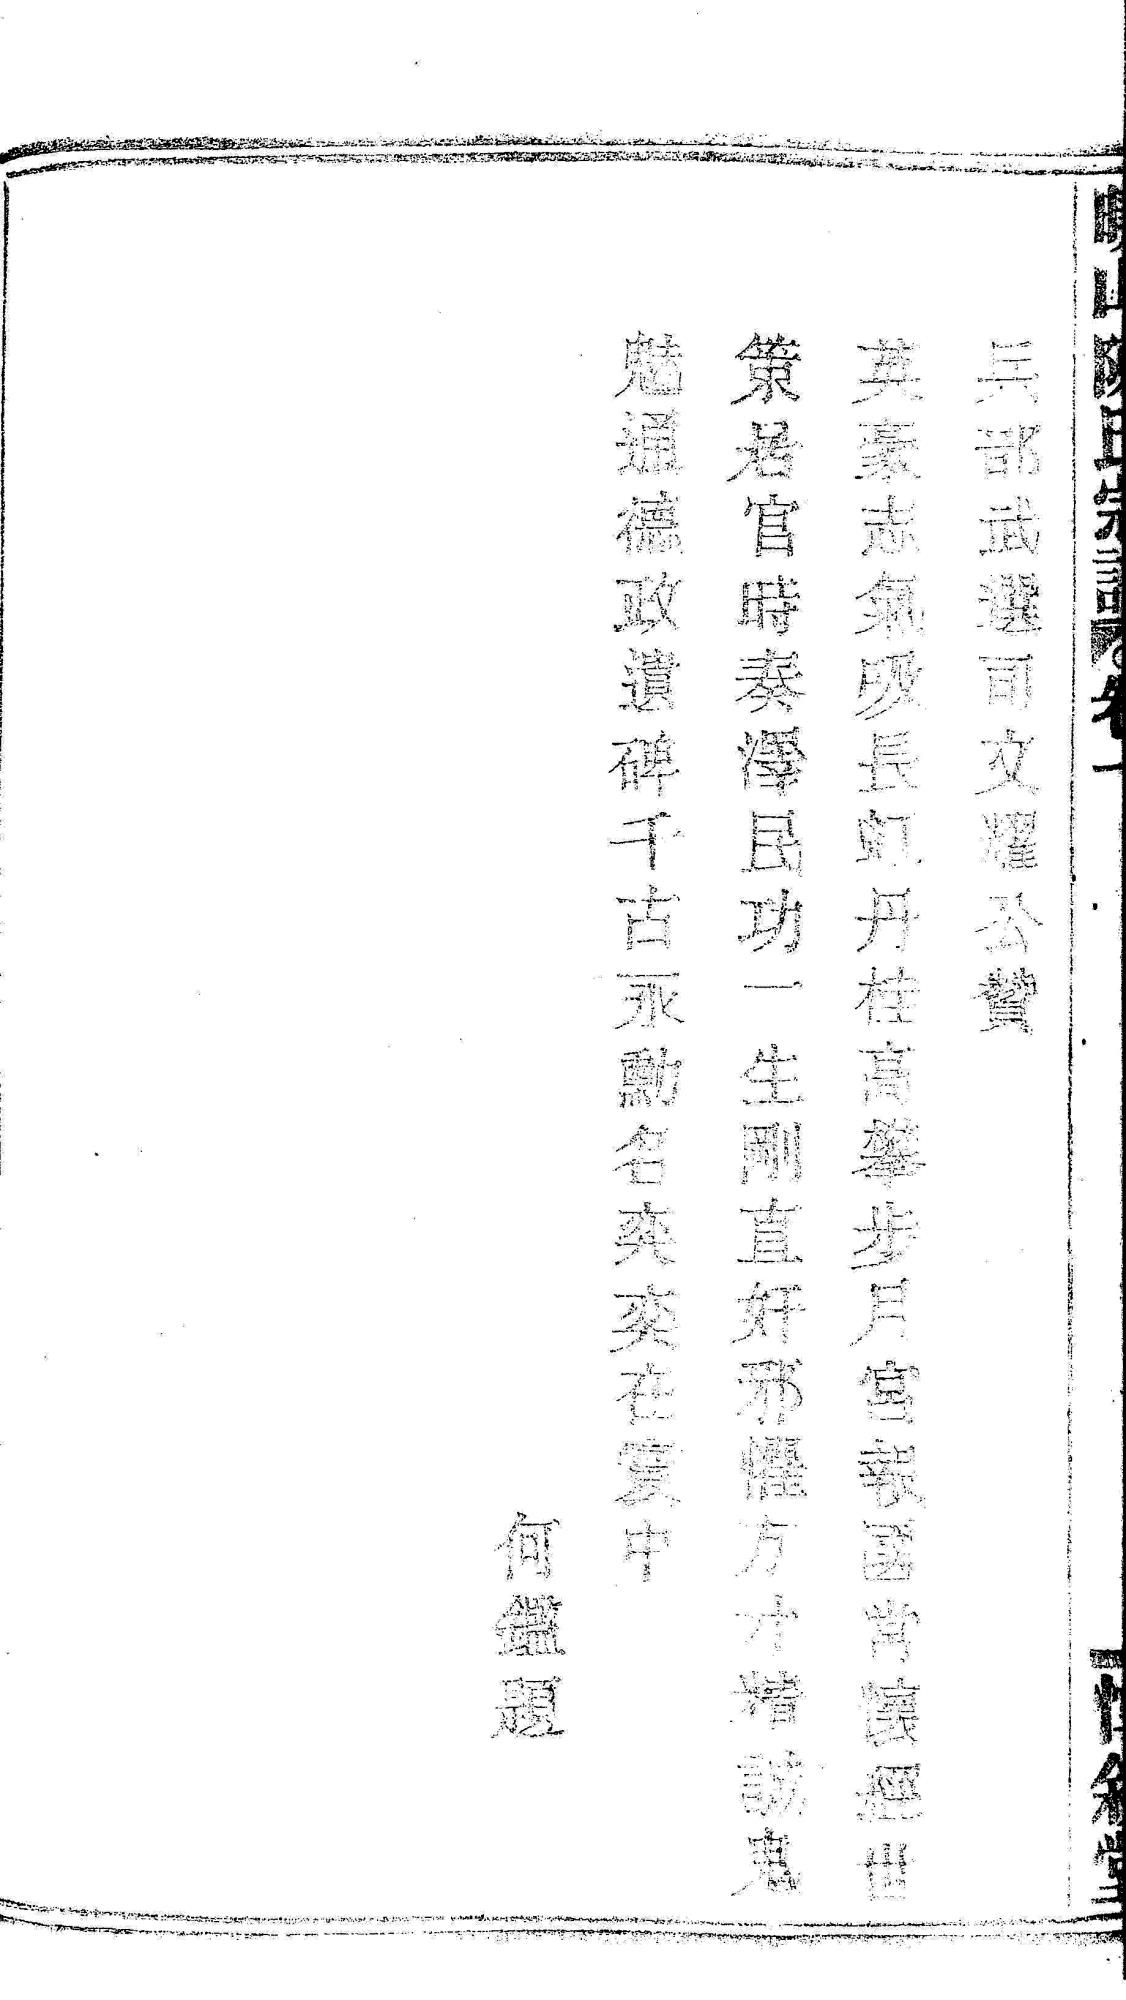 兵部武選司文耀公贊
英豪志氣吸長虹丹桂高攀步月宮報國常懷經世
策居官時奏澤民功一生剛直奸邪懼方寸精誠鬼
魅通德政遺碑千古永勳名奕奕在寰中
何鑑題